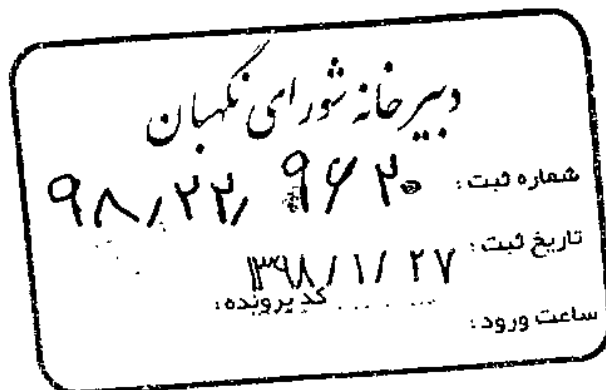 دبیرخانه شورای نگهبان
شماره ثبت: ۹۸/۲۲/ ۹۶۲۰
تاریخ ثبت: ۱۳۹۸/۱/۲۷
کد پرونده:
ساعت ورود: